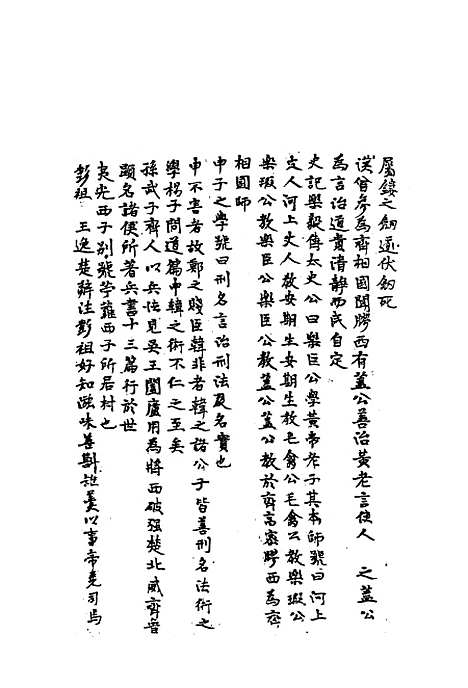 屬鏤之劍遂伏劍死
漢曹參為齊相國聞膠西有蓋公善治黃老言使人 之蓋公
為言治道貴清靜而民自定
史記樂毅傳太史公曰樂臣公學黃帝老子其本師號曰河上
丈人河上丈人教安期生安期生教毛翕公毛翕公教樂瑕公
樂瑕公教樂臣公樂臣公教蓋公蓋公教於齊高密膠西為齊
相國師
申子之學號曰刑名言治刑法及名實也
申不害者故鄭之賤臣韓非者韓之諸公子皆善刑名法術之
學楊子問道篇申韓之術不仁之至矣
孫武子齊人以兵法見吳王闔廬用為將西破强楚北威齊晉
顯名諸侯所著兵書十三篇行於世
夷光西子别號苧蘿西子所居村也
彭祖 王逸楚辭注彭祖好和滋味善斟雉羹以事帝堯司馬